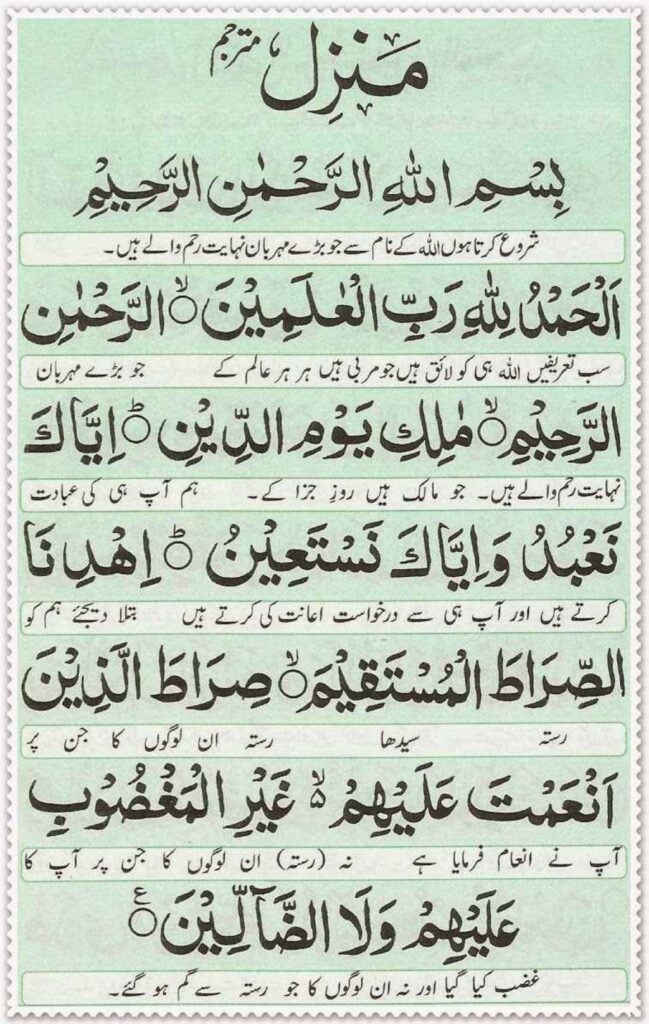 مَنْزِل مترجم
بِسْمِ اللهِ الرَّحْمٰنِ الرَّحِيْمِ
شروع کرتا ہوں اللہ کے نام سے جو بڑے مہربان نہایت رحم والے ہیں۔
اَلْحَمْدُ لِلّٰهِ رَبِّ الْعٰلَمِيْنَ ۙ الرَّحْمٰنِ
سب تعریفیں اللہ ہی کو لائق ہیں جو مربی ہیں ہر ہر عالم کے جو بڑے مہربان
الرَّحِيْمِ ۙ مٰلِكِ يَوْمِ الدِّيْنِ ؕ اِيَّاكَ
نہایت رحم والے ہیں۔ جو مالک ہیں روزِ جزا کے۔ ہم آپ ہی کی عبادت
نَعْبُدُ وَاِيَّاكَ نَسْتَعِيْنُ ؕ اِهْدِنَا
کرتے ہیں اور آپ ہی سے درخواست اعانت کی کرتے ہیں بتلا دیجئے ہم کو
الصِّرَاطَ الْمُسْتَقِيْمَ ۙ صِرَاطَ الَّذِيْنَ
رستہ سیدھا رستہ ان لوگوں کا جن پر
اَنْعَمْتَ عَلَيْهِمْ ۙ۵ غَيْرِ الْمَغْضُوْبِ
آپ نے انعام فرمایا ہے نہ (رستہ) ان لوگوں کا جن پر آپ کا
عَلَيْهِمْ وَلَا الضَّآلِّيْنَ ع
غضب کیا گیا اور نہ ان لوگوں کا جو رستہ سے گم ہو گئے۔